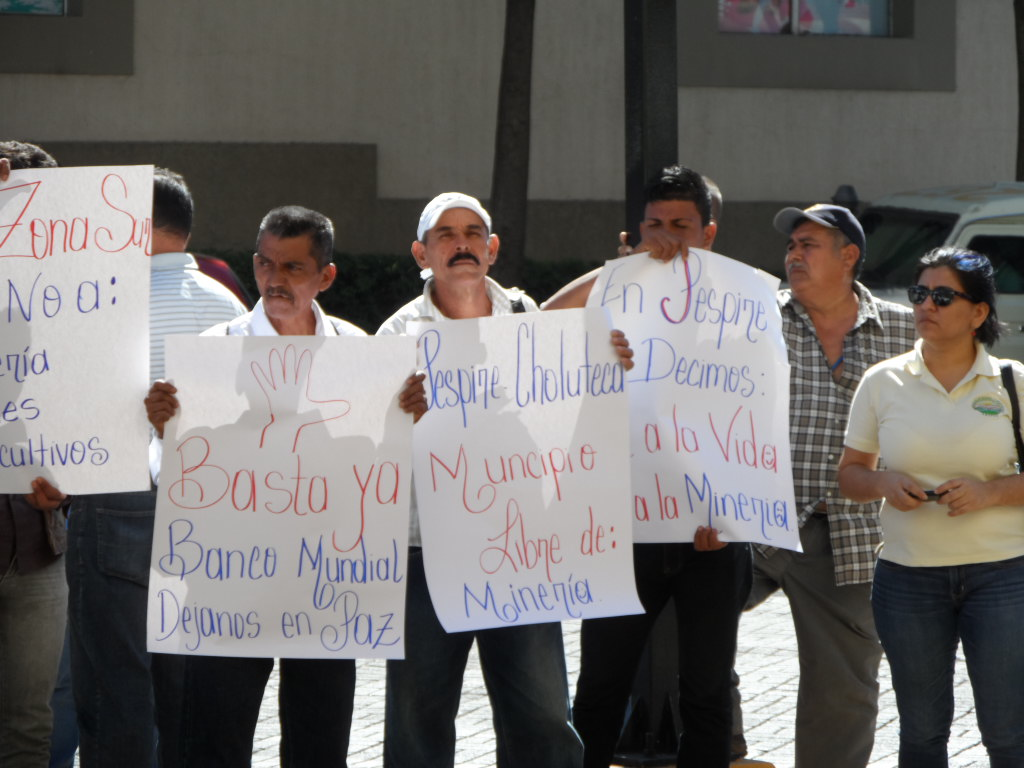 Zona Sur
No a:
ería
es
cultivos
Basta ya
Banco Mundial
Dejanos en Paz
Pespire Choluteca
Muncipio
Libre de:
Minería.
En Pespire
Decimos:
a la Vida
a la Mineria